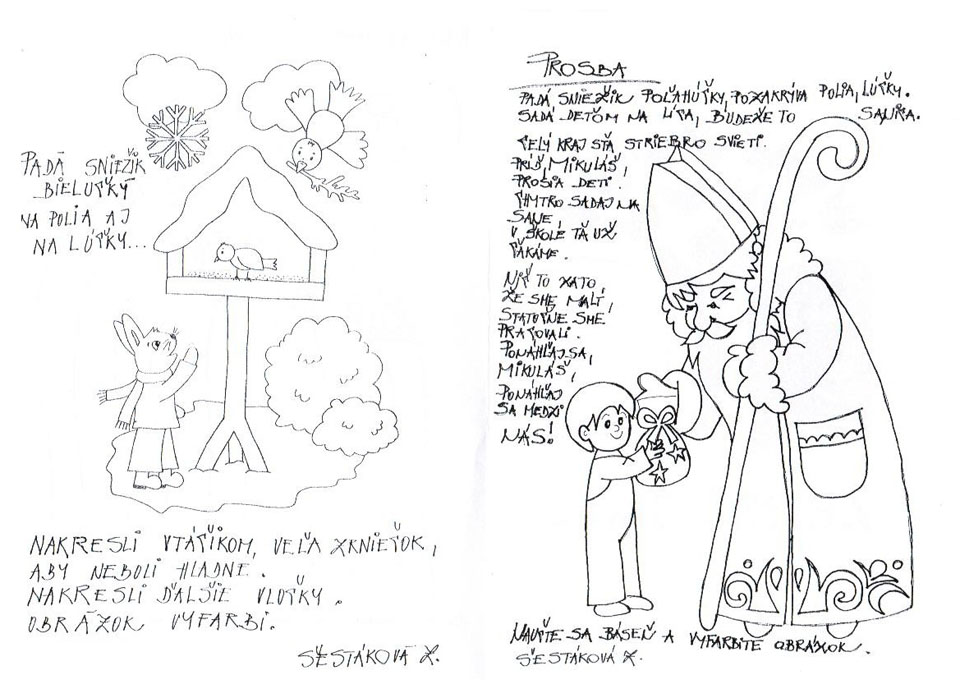 PADÁ SNIEŽIK
BIELUČKÝ
NA POLIA AJ
NA LÚČKY...
NAKRESLI VTÁČIKOM, VEĽA ZRNIEČOK,
ABY NEBOLI HLADNE.
NAKRESLI ĎALŠIE VLOČKY.
OBRÁZOK VYFARBI.
ŠESTÁKOVÁ Z.
PROSBA
PADÁ SNIEŽIK POĽAHÚČKY, POZAKRÝVA POLIA, LÚČKY.
SADÁ DEŤOM NA LÍCA, BUDEŽE TO SANICA.
CELÝ KRAJ SťA STRIEBRO SVIETI.
PRÍĎ, MIKULÁŠ,
PROSIA DETI.
CHYTRO SADAJ NA
SANE,
V ŠKOLE ŤA UŽ
ČAKÁME.
NIČ TO ZATO,
ŽE SME MALÍ,
STATOČNE SME
PRACOVALI.
PONÁHĽAJ SA,
MIKULÁŠ,
PONÁHĽAJ
SA MEDZI
NÁS!
NAUČTE SA BÁSEŇ A VYFARBITE OBRÁZOK.
ŠESTÁKOVÁ Z.